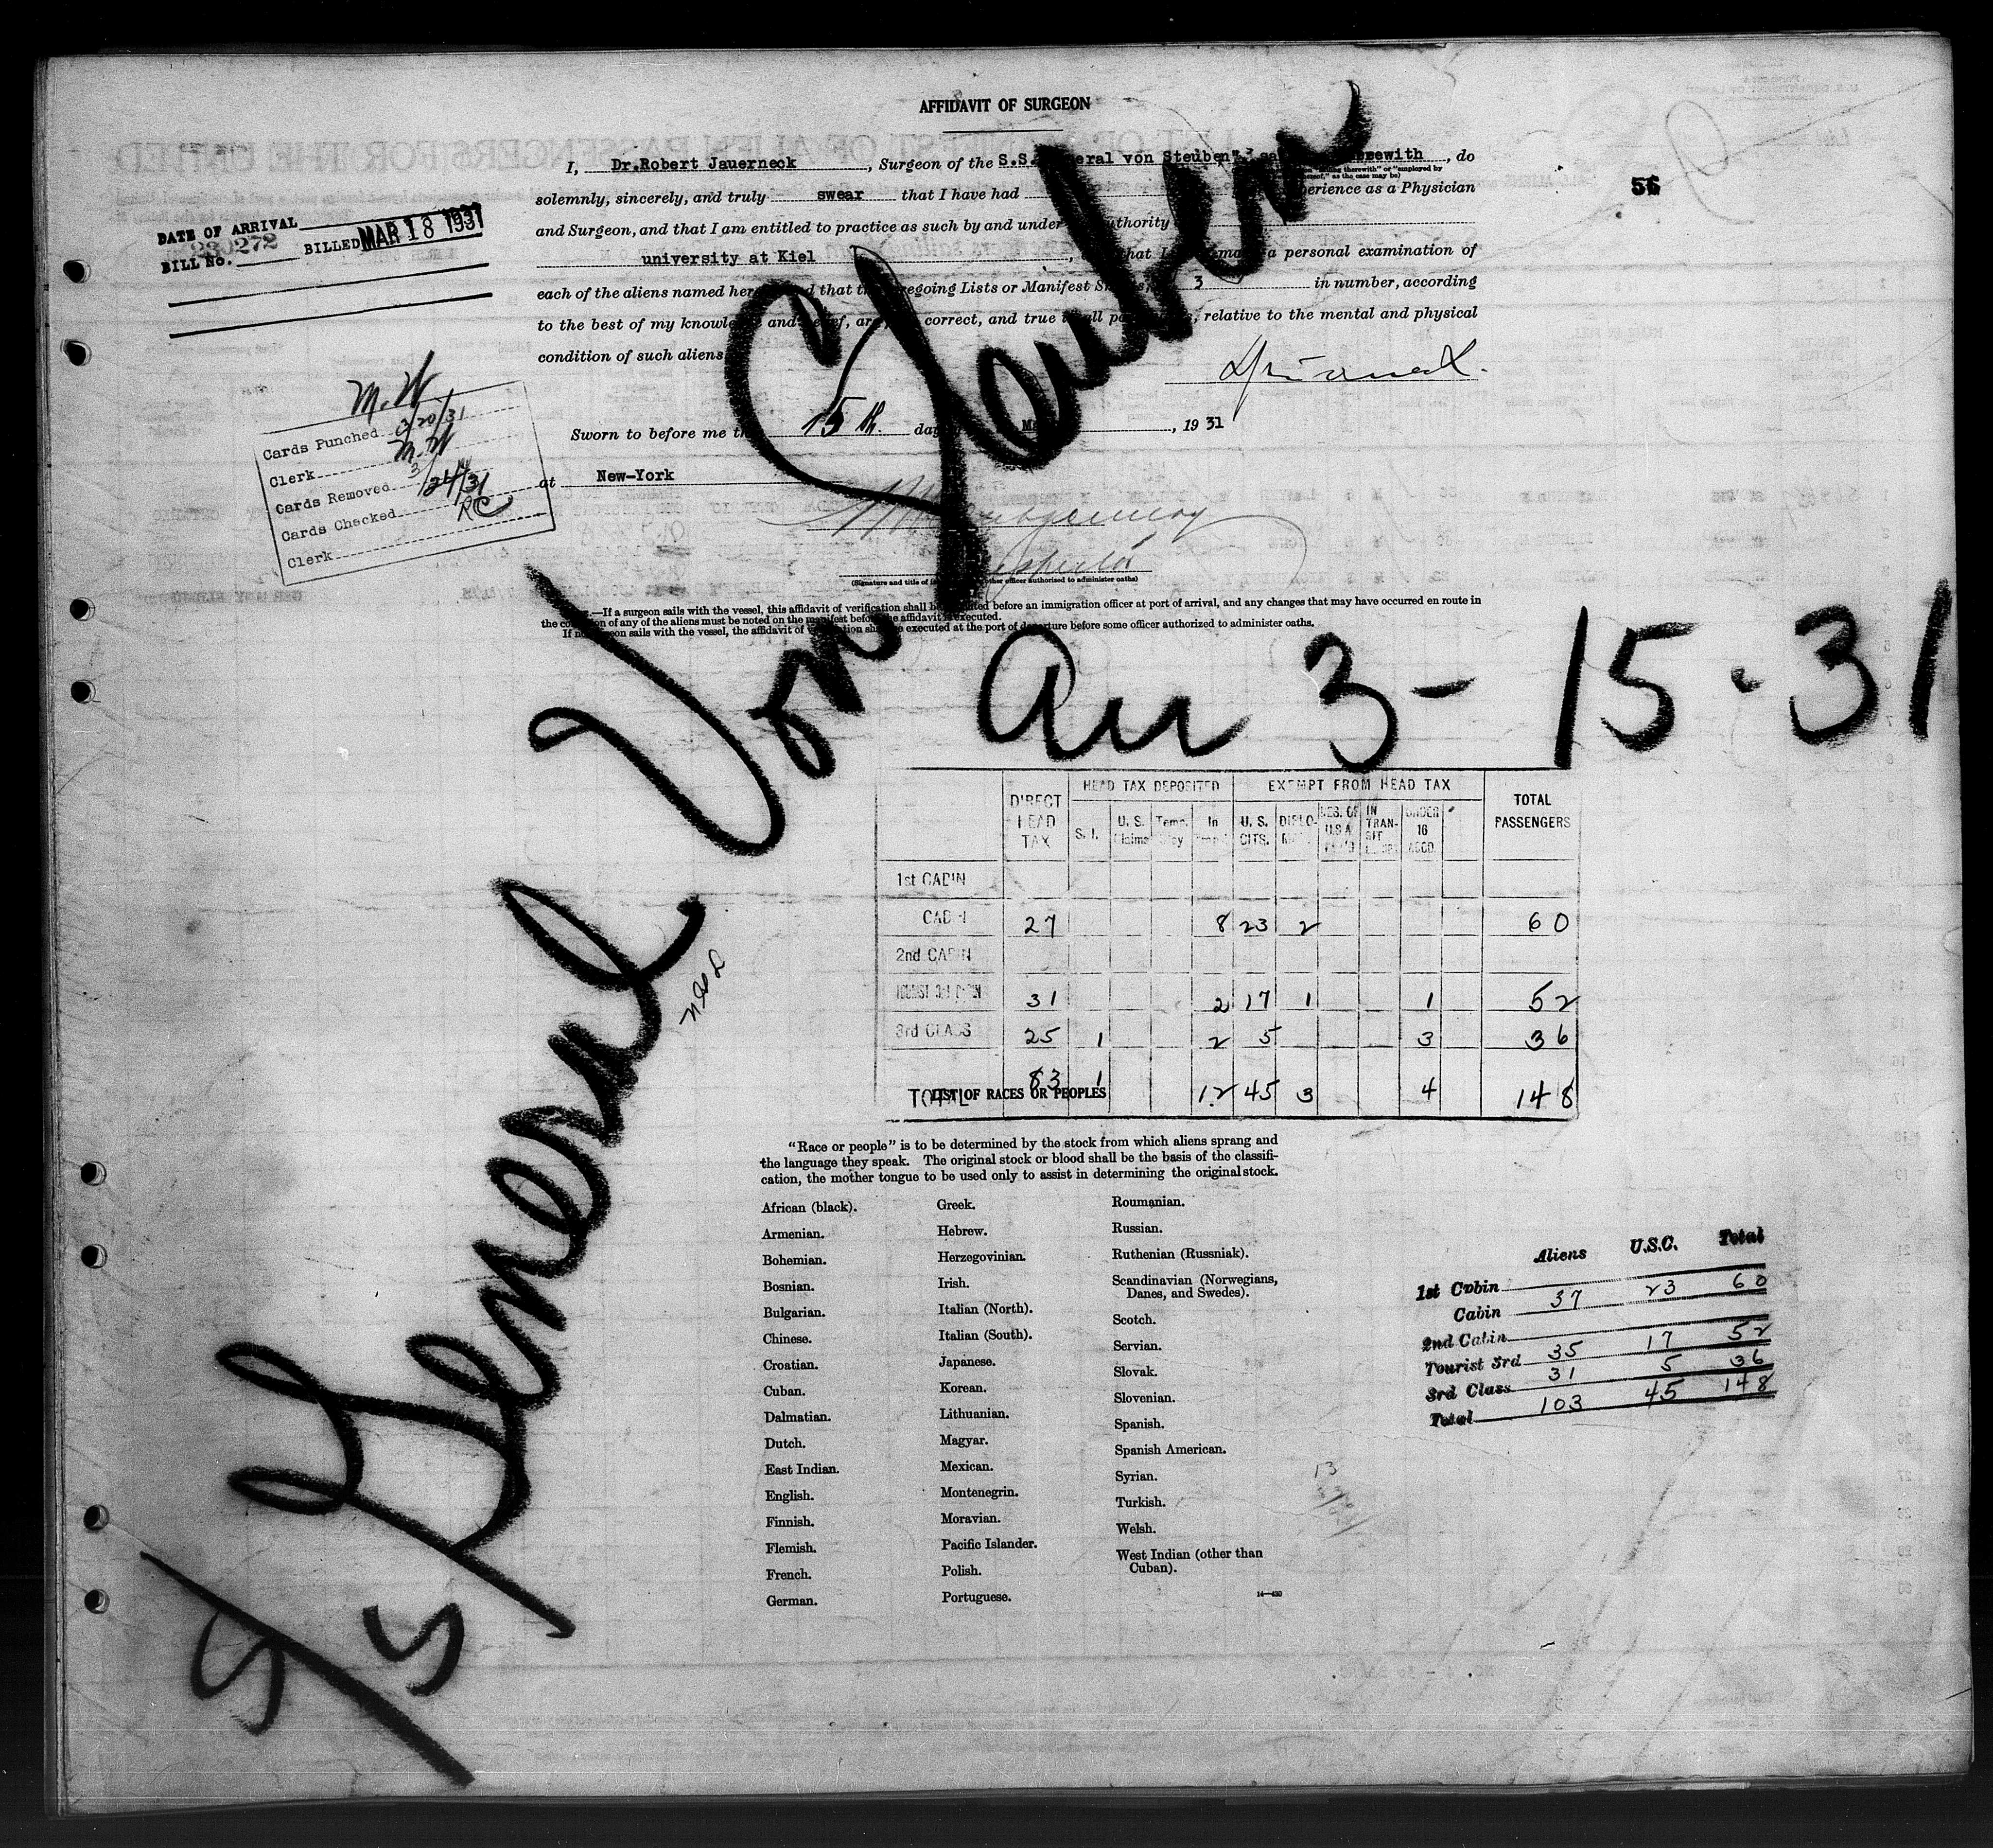 AFFIDAVIT OF SURGEON
I, Dr.Robert Jauerneck, Surgeon of the S.S. eral von Steuben", ewith, do
solemnly, sincerely, and truly swear that I have had erience as a Physician
and Surgeon, and that I am entitled to practice as such by and under uthority
university at Kiel, that I a personal examination of
each of the aliens named her d that th egoing Lists or Manifest S 3 in number, according
to the best of my knowle and ef, ar correct, and true all pa relative to the mental and physical
condition of such aliens
56
DATE OF ARRIVAL
BILL No. 230272 BILLED MAR 18 1931
M.W
Cards Punched 3/20/31
Clerk M.W
Cards Removed 3/24/31
Cards Checked RC
Clerk
Sworn to before me th 15 th. day , 1931
at New-York
(Signature and title of other officer authorized to administer oaths)
.—If a surgeon sails with the vessel, this affidavit of verification shall be ted before an immigration officer at port of arrival, and any changes that may have occurred en route in
the co on of any of the aliens must be noted on the manifest before the affidavit is executed.
If no eon sails with the vessel, the affidavit of tion sha e executed at the port of de rture before some officer authorized to administer oaths.
S/S General Von Steuben
arr 3-15-31
DIRECT HEAD TAX HEAD TAX DEPOSITED EXEMPT FROM HEAD TAX TOTAL PASSENGERS
S. I. U. S. Claims Temp. In U. S. CITS. DIPLO- RES. OF U.S.A. IN TRAN- SIT UNDER 16 ACCD.
1st CABIN
CABIN 27 8 23 2 60
2nd CABIN
TOURIST 3rd CABIN 31 2 17 1 1 52
3rd CLASS 25 1 2 5 3 36
TOTAL 83 1 12 45 3 4 148
LIST OF RACES OR PEOPLES
"Race or people" is to be determined by the stock from which aliens sprang and
the language they speak. The original stock or blood shall be the basis of the classifi-
cation, the mother tongue to be used only to assist in determining the original stock.
African (black).
Armenian.
Bohemian.
Bosnian.
Bulgarian.
Chinese.
Croatian.
Cuban.
Dalmatian.
Dutch.
East Indian.
English.
Finnish.
Flemish.
French.
German.
Greek.
Hebrew.
Herzegovinian.
Irish.
Italian (North).
Italian (South).
Japanese.
Korean.
Lithuanian.
Magyar.
Mexican.
Montenegrin.
Moravian.
Pacific Islander.
Polish.
Portuguese.
Roumanian.
Russian.
Ruthenian (Russniak).
Scandinavian (Norwegians,
Danes, and Swedes).
Scotch.
Servian.
Slovak.
Slovenian.
Spanish.
Spanish American.
Syrian.
Turkish.
Welsh.
West Indian (other than
Cuban).
14—430
Aliens U.S.C. Total
1st Cabin
Cabin 37 23 60
2nd Cabin
Tourist 3rd 35 17 52
3rd Class 31 5 36
Total 103 45 148
13